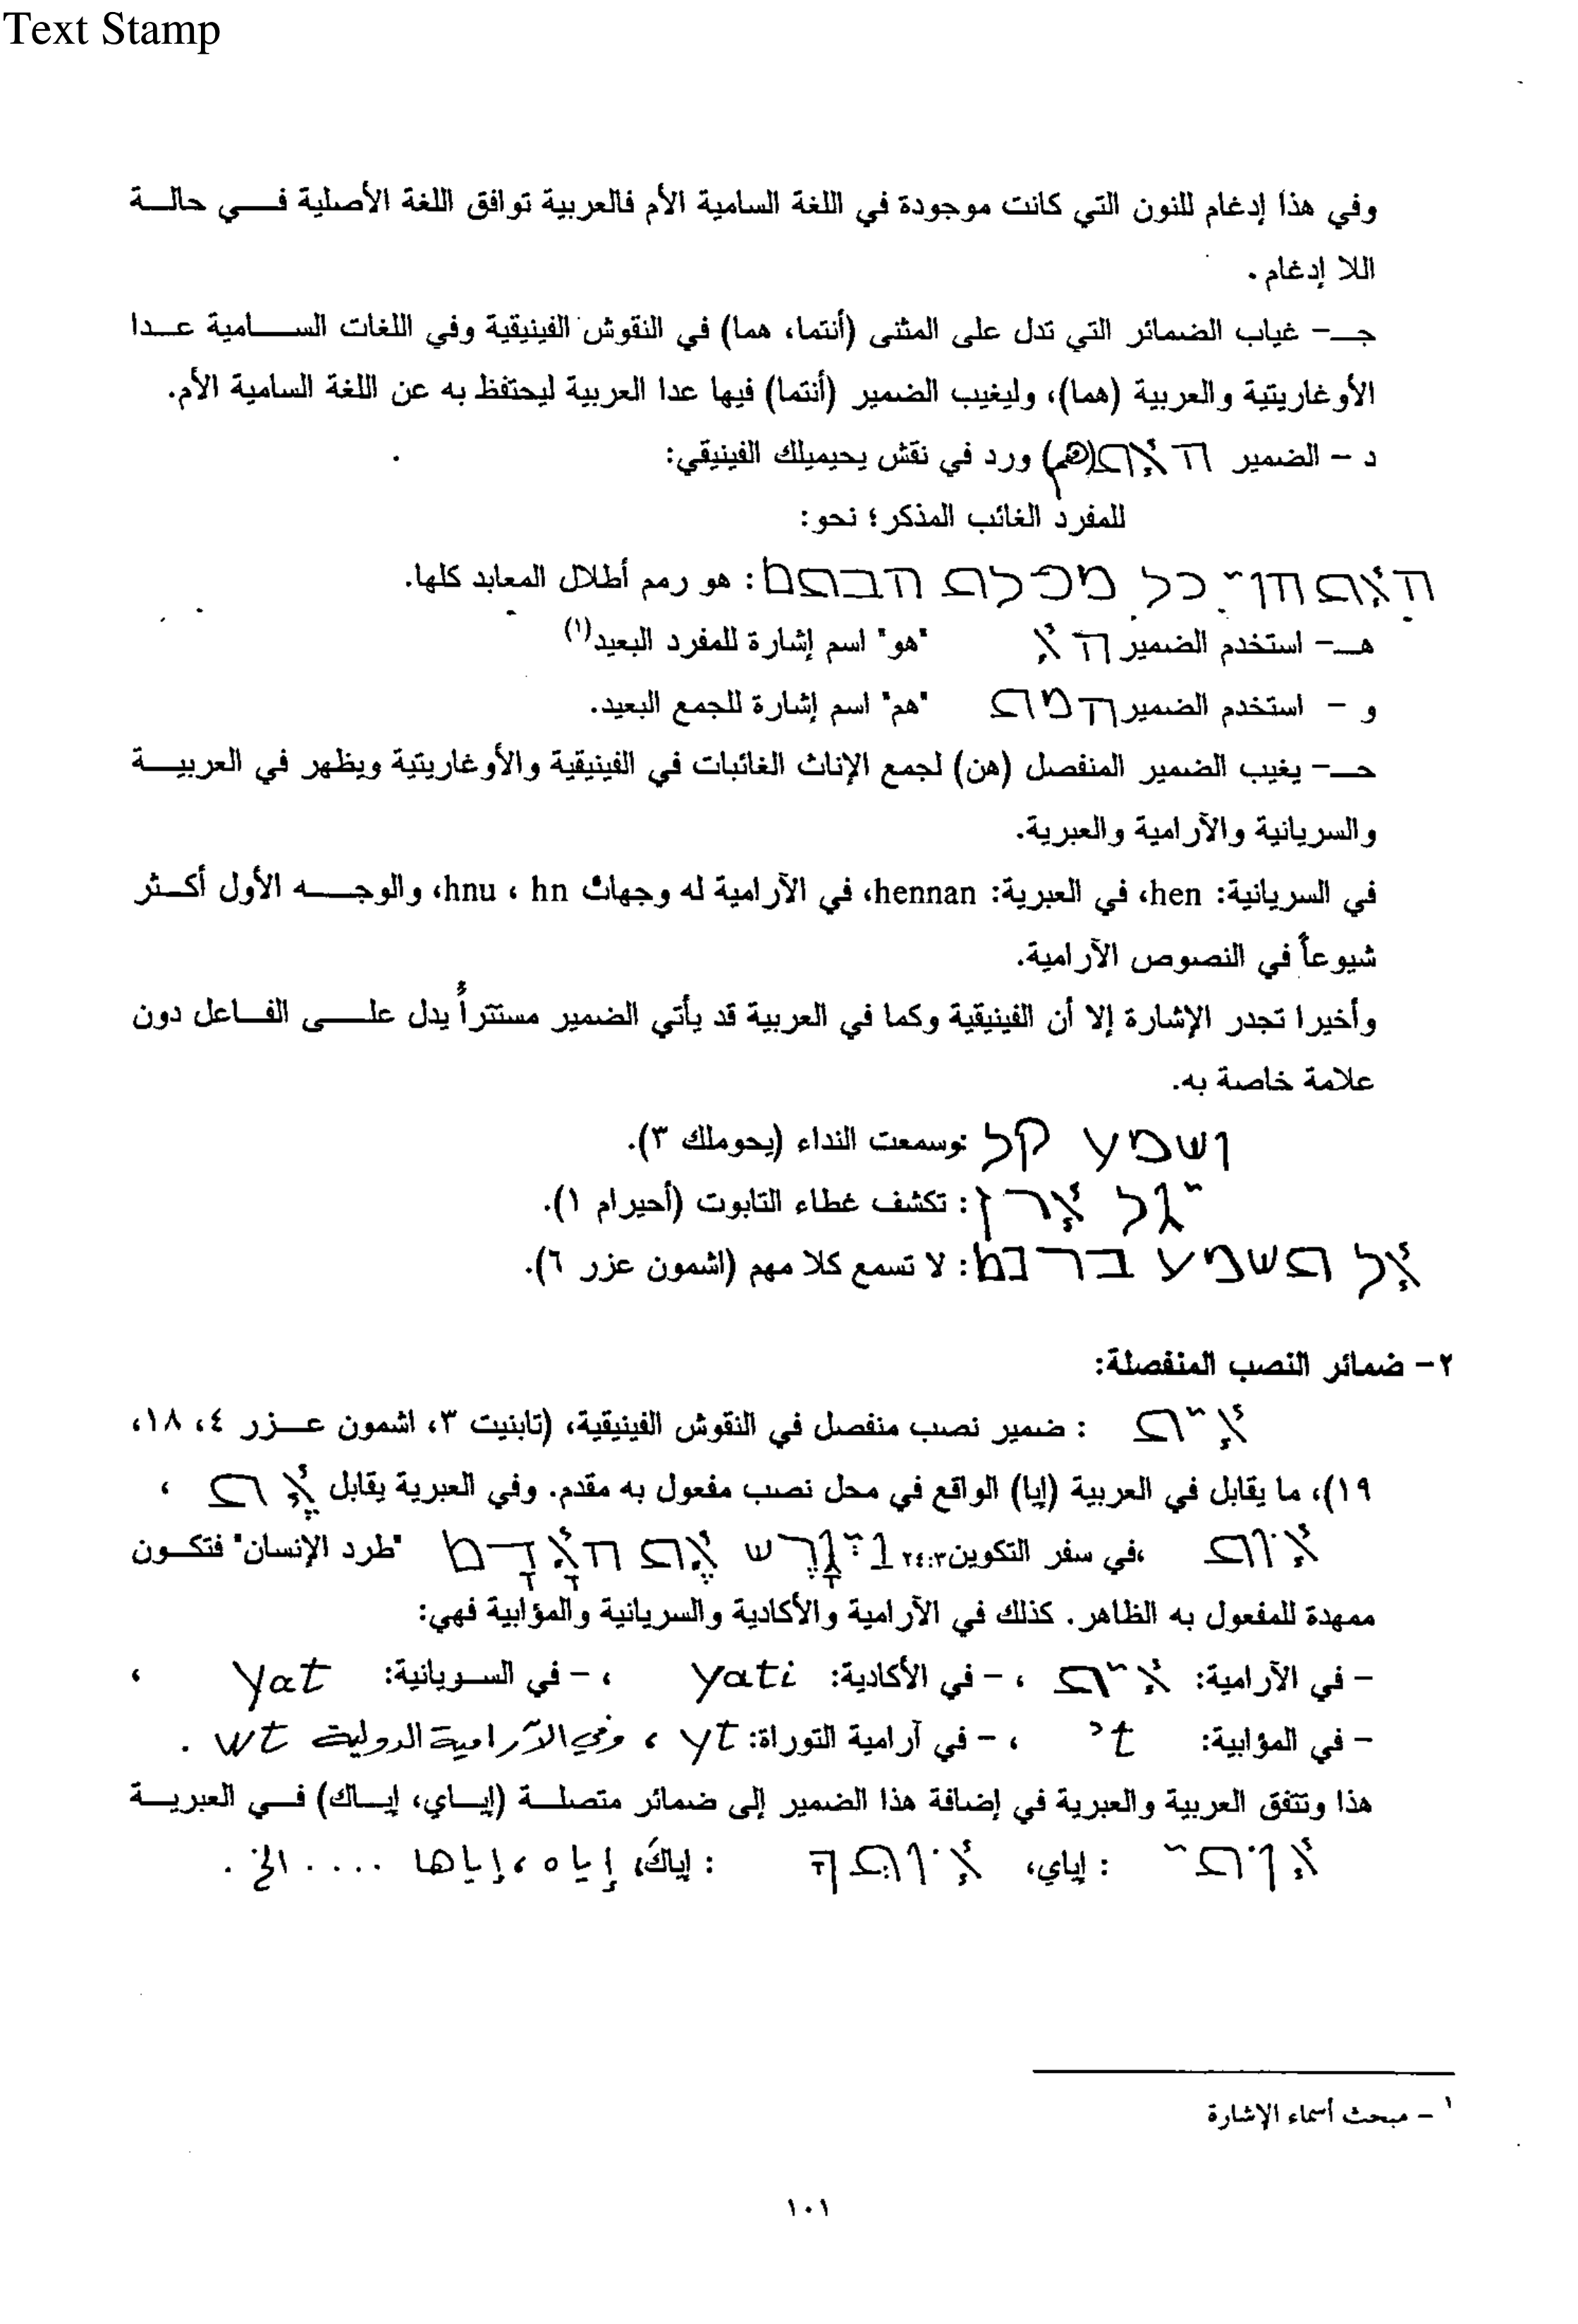 Text Stamp
وفي هذا إدغام للنون التي كانت موجودة في اللغة السامية الأم فالعربية توافق اللغة الأصلية فـــي حالــة
اللا إدغام.
جــ- غياب الضمائر التي تدل على المثنى (أنتما، هما) في النقوش الفينيقية وفي اللغات الســـامية عــدا
الأوغاريتية والعربية (هما)، وليغيب الضمير (أنتما) فيها عدا العربية ليحتفظ به عن اللغة السامية الأم.
د - الضمير האת (هم) ورد في نقش يحيميلك الفينيقي:
للمفرد الغائب المذكر؛ نحو:
האת חוי כל מפלת הבתם : هو رمم أطلال المعابد كلها.
هــ- استخدم الضمير הא "هو" اسم إشارة للمفرد البعيد(١)
و - استخدم الضمير המת "هم" اسم إشارة للجمع البعيد.
حــ- يغيب الضمير المنفصل (هن) لجمع الإناث الغائبات في الفينيقية والأوغاريتية ويظهر في العربيـــة
والسريانية والآرامية والعبرية.
في السريانية: hen، في العبرية: hennan، في الآرامية له وجهات hnu ، hn، والوجــــه الأول أكــثر
شيوعاً في النصوص الآرامية.
وأخيرا تجدر الإشارة إلا أن الفينيقية وكما في العربية قد يأتي الضمير مستتراً يدل علـــى الفــاعل دون
علامة خاصة به.
ושמע קל :وسمعت النداء (يحوملك ٣).
יגל ארן : تكشف غطاء التابوت (أحيرام ١).
אל תשמע ברנם : لا تسمع كلا مهم (اشمون عزر ٦).
٢- ضمائر النصب المنفصلة:
אית : ضمير نصب منفصل في النقوش الفينيقية، (تابنيت ٣، اشمون عـــزر ٤، ١٨،
١٩)، ما يقابل في العربية (إيا) الواقع في محل نصب مفعول به مقدم. وفي العبرية يقابل אֵת ،
אות ،في سفر التكوين ٢٤:٣ וַיְגָרֶשׁ אֶת הָאָדָם "طرد الإنسان" فتكــون
ممهدة للمفعول به الظاهر. كذلك في الآرامية والأكادية والسريانية والمؤابية فهي:
- في الآرامية: אית ، - في الأكادية: yati ، - في السـريانية: yat ،
- في المؤابية: ʾt ، - في آرامية التوراة: yt ، وفي الآرامية الدولية wt .
هذا وتتفق العربية والعبرية في إضافة هذا الضمير إلى ضمائر متصلــة (إيــاي، إيــاك) فــي العبريــة
אותי : إياي، אותך : إياكَ، إياه، إياها .... الخ .
١ - مبحث أسماء الإشارة
١٠١